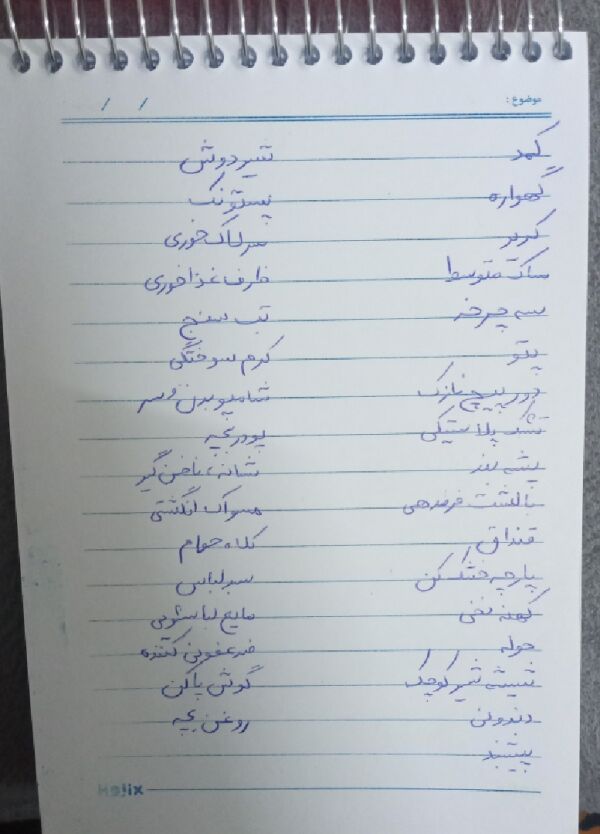 موضوع :
/ /
کمد شیردوش
گهواره پستونک
کریر سرلاک خوری
ساک متوسط ظرف غذاخوری
سه چرخه تب سنج
پتو کرم سوختگی
دور پیچ نازک شامپو بدن و سر
تشک پلاستیکی پودر بچه
پشه بند شانه، ناخن گیر
بالشت فرم دهی مسواک انگشتی
قنداق کلاه حمام
پارچه خشک کن سبد لباس
کهنه نخی مایع لباسشویی
حوله ضدعفونی کننده
شیشه شیر کوچک گوش پاکن
دندونی روغن بچه
پیشبند
Hojix